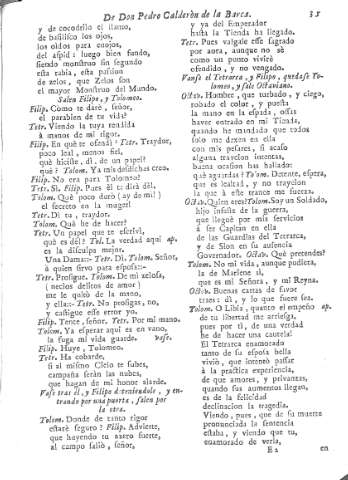 De Don Pedro Calderòn de la Barca. 35
y de cocodrilo el llanto,
de basilisco los ojos,
los oídos para enojos,
del aspid: luego bien fundo,
siendo monstruo sin segundo
esta rabia, esta passion
de zelos, que Zelos son
el mayor Monstruo del Mundo.
Salen Filipo, y Tolomeo.
Filip. Cómo te darè, señor,
el parabien de tu vida?
Tetr. Viendo la tuya rendida
à manos de mi rigor.
Filip. En què te ofendì? Tetr. Traydor,
poco leal, menos fiel,
què hiciste, dì, de un papel?
què? Tolom. Ya mis desdichas creo.
Filip. No era para Tolomeo?
Tetr. Sì. Filip. Pues èl te dirà dèl.
Tolom. Què poco durò (ay de mi!)
el secreto en la muger!
Tetr. Dì tu, traydor.
Tolom. Què he de hacer?
Tetr. Un papel que te escrivì,
què es dèl? Tol. La verdad aqui ap.
es la disculpa mejor.
Una Dama:- Tetr. Dì. Tolom. Señor,
à quien sirvo para esposa:-
Tetr. Prosigue. Tolom. De mi zelosa,
(necios delitos de amor)
me le quitò de la mano,
y ella:- Tetr. No prosigas, no,
y castigue esse error yo.
Filip. Tente, señor. Tetr. Por mi mano.
Tolom. Ya esperar aqui es en vano,
la fuga mi vida guarde. vase.
Filip. Huye, Tolomeo.
Tetr. Ha cobarde,
si al mismo Cielo te subes,
campaña seràn las nubes,
que hagan de mi honor alarde.
Vase tras èl, y Filipo deteniendole, y en-
trando por una puerta, salen por
la otra.
Tolom. Donde de tanto rigor
estarè seguro? Filip. Advierte,
que huyendo tu azero fuerte,
al campo saliò, señor,
y ya del Emperador
hasta la Tienda ha llegado.
Tetr. Pues valgale esse sagrado
por aora, aunque no sè
como un punto vivirè
ofendido, y no vengado.
Vanse el Tetrarca, y Filipo, quedase To-
lomeo, y sale Octaviano.
Octav. Hombre, que turbado, y ciego,
robado el color, y puesta
la mano en la espada, ossas
haver entrado en mi Tienda,
quando he mandado que todos
solo me dexen en ella
con mis pesares, si acaso
alguna traycion intentas,
buena ocasion has hallado:
què aguardas? Tolom. Detente, espera,
que es lealtad, y no traycion
la que à este trance me fuerza.
Octav. Quien eres? Tolom. Soy un Soldado,
hijo infuste de la guerra,
que lleguè por mis servicios
à ser Capitan en ella
de las Guardias del Tetrarca,
y de Sion en su ausencia
Governador. Octav. Què pretendes?
Tolom. No mi vida, aunque pudiera,
la de Mariene sì,
que es mi Señora, y mi Reyna.
Octav. Buenas cartas de favor
traes: dì, y lo que fuere sea.
Tolom. O Libia, quanto el empeño ap.
de tu libertad me arriesga,
pues por tì, de una verdad
he de hacer una cautela!
El Tetrarca enamorado
tanto de su esposa bella
viviò, que intentò passar
à la practica experiencia,
de que amores, y privanzas,
quando sus aumentos llegan,
es de la felicidad
declinacion la tragedia.
Viendo, pues, que de su muerte
pronunciada la sentencia
estaba, y viendo que tu,
enamorado de verla,
E 2 en